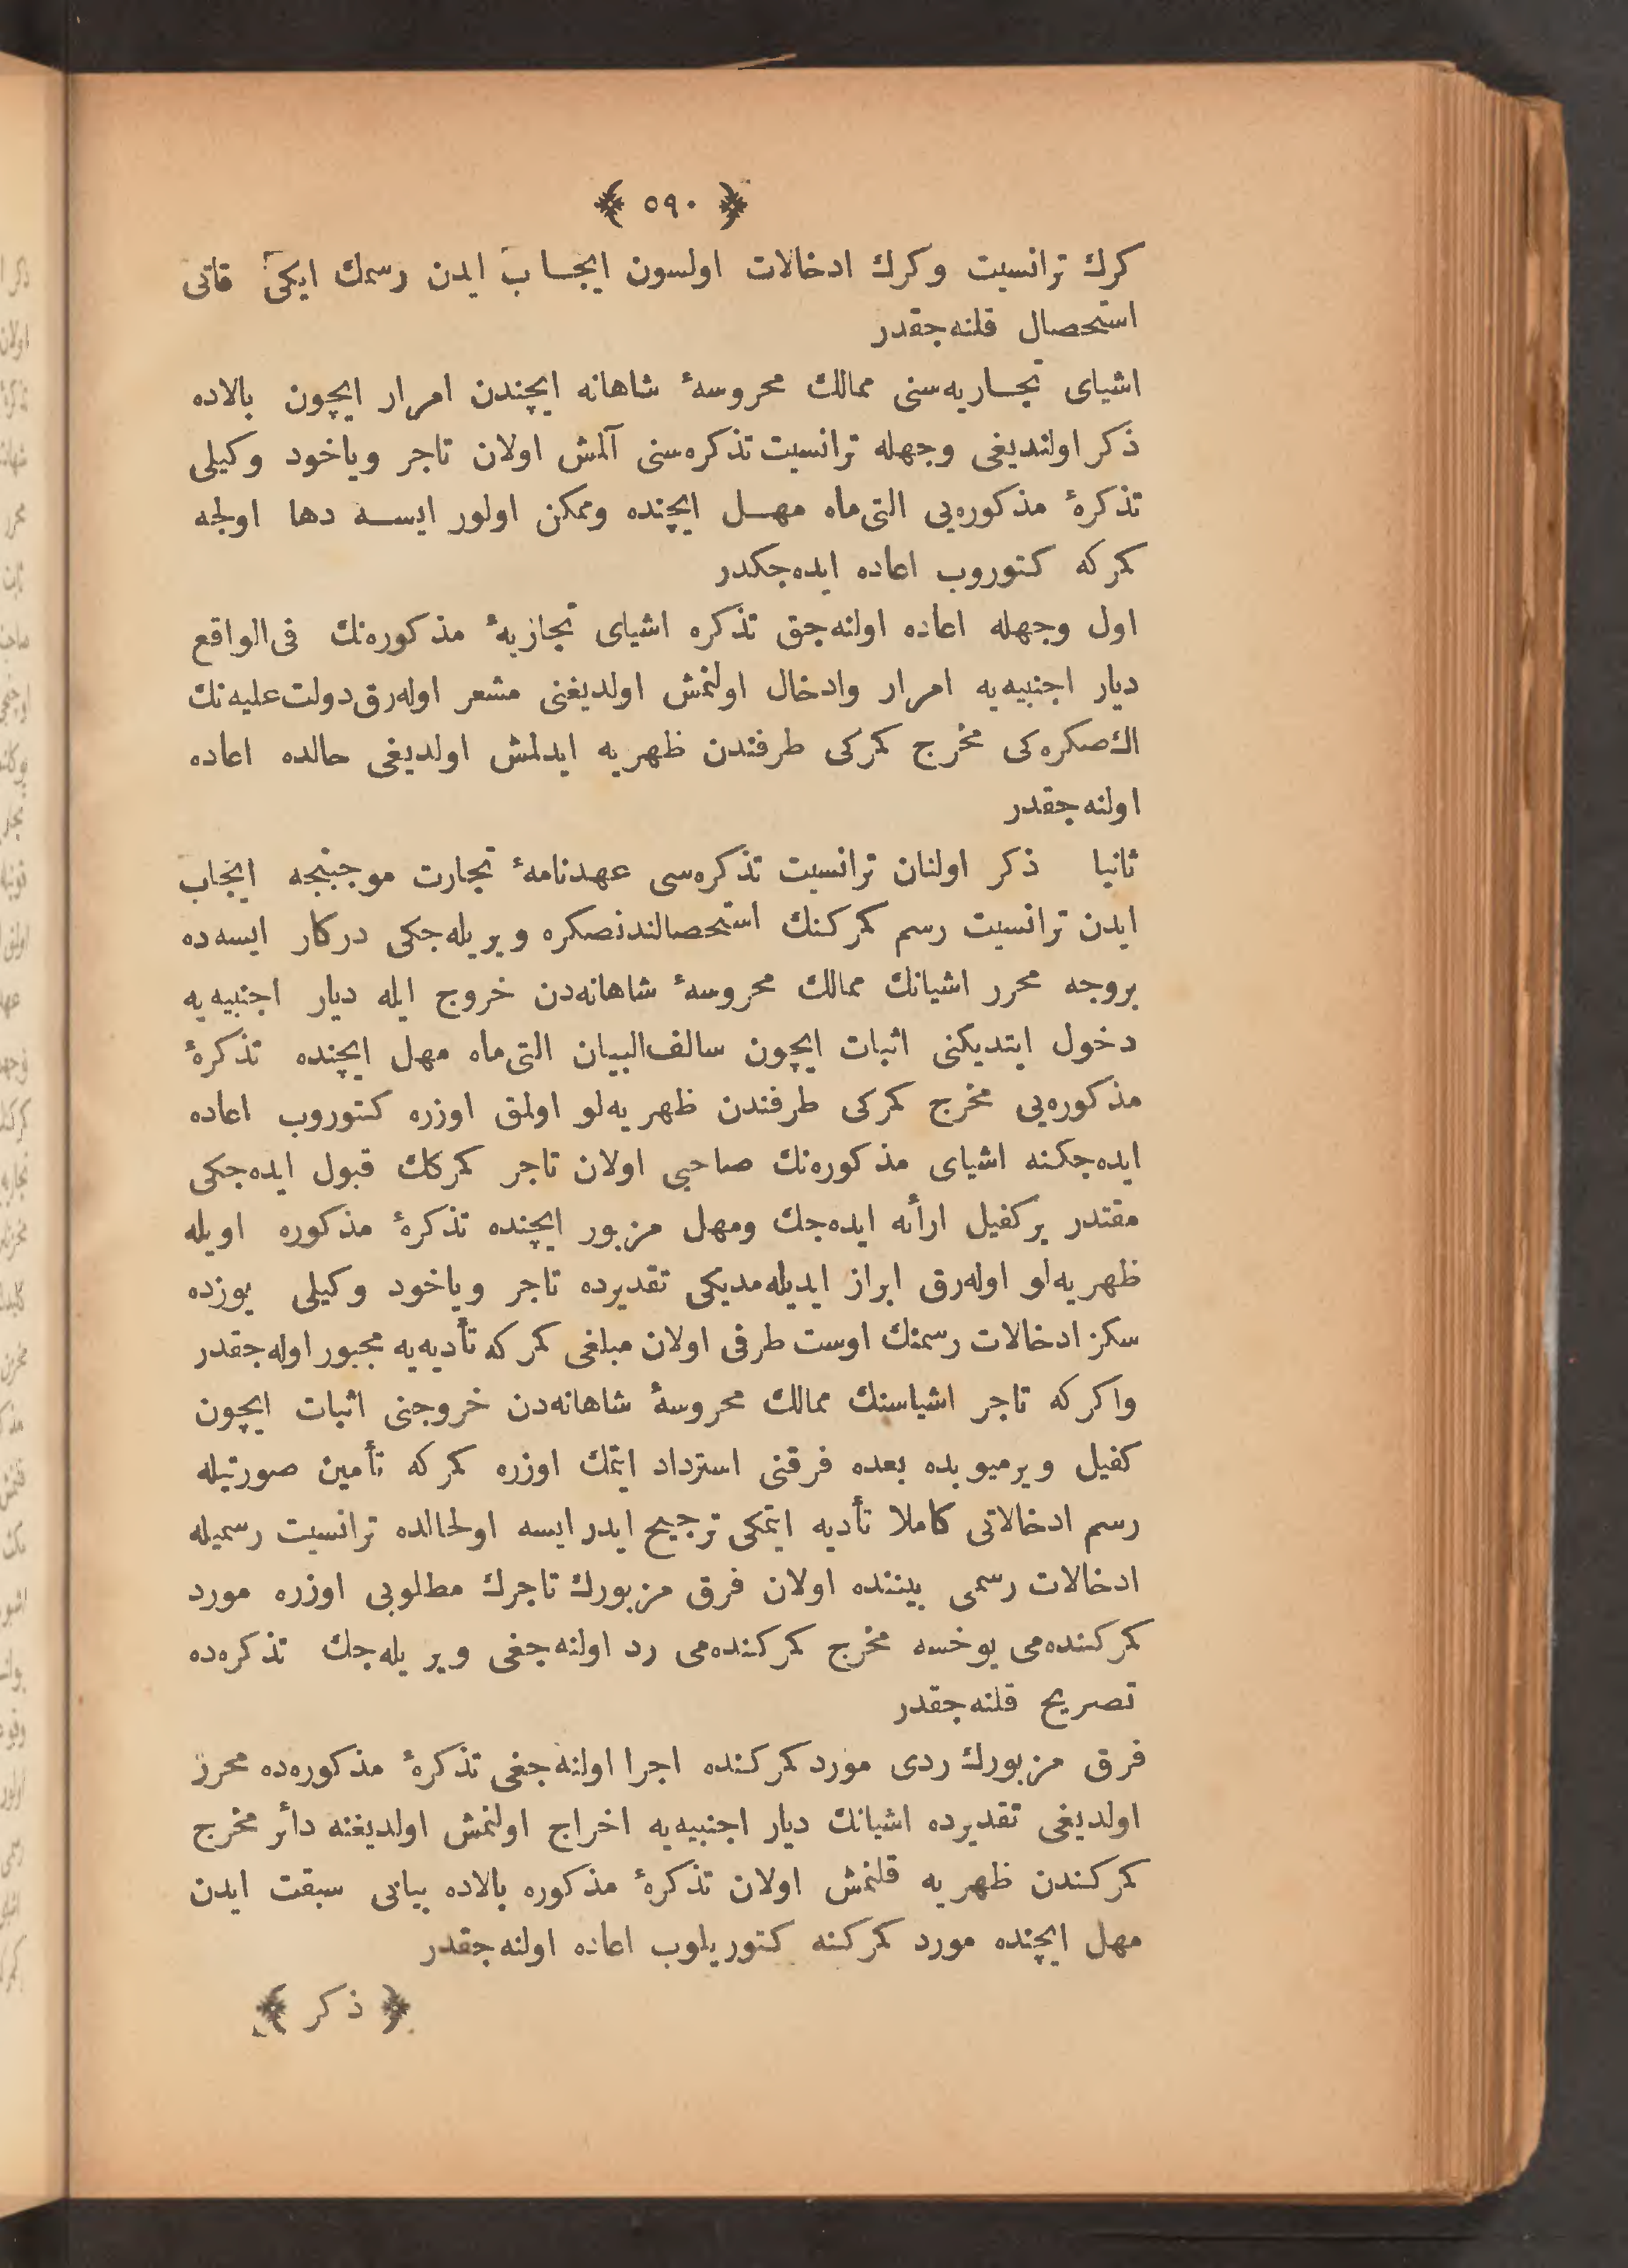 ﴿ ٥٩٠ ﴾
كرك ترانسيت وكرك ادخالات اولسون ايجاب ايدن رسمك ايكى قاتى
استحصال قلنه‌جقدر
اشياى تجاريه‌سنى ممالك محروسهٔ شاهانه ايچندن امرار ايچون بالاده
ذكر اولنديغى وجهله ترانسيت تذكره‌سنى آلمش اولان تاجر وياخود وكيلى
تذكرهٔ مذكوره‌يى التى‌ماه مهل ايچنده وممكن اولور ايسه دها اولجه
كمركه كتوروب اعاده ايده‌جكدر
اول وجهله اعاده اولنه‌جق تذكره اشياى تجازيهٔ مذكوره‌نك فى‌الواقع
ديار اجنبيه‌يه امرار وادخال اولنمش اولديغنى مشعر اوله‌رق دولت‌عليه‌نك
اك‌صكره‌كى مخرج كمركى طرفندن ظهريه ايدلمش اولديغى حالده اعاده
اولنه‌جقدر
ثانيا ذكر اولنان ترانسيت تذكره‌سى عهدنامهٔ تجارت موجبنجه ايجاب
ايدن ترانسيت رسم كمركنك استحصالندنصكره ويريله‌جكى دركار ايسه‌ده
بروجه محرر اشيانك ممالك محروسهٔ شاهانه‌دن خروج ايله ديار اجنبيه‌يه
دخول ايتديكنى اثبات ايچون سالف‌البيان التى‌ماه مهل ايچنده تذكرهٔ
مذكوره‌يى مخرج كمركى طرفندن ظهريه‌لو اولمق اوزره كتوروب اعاده
ايده‌جكنه اشياى مذكوره‌نك صاحبى اولان تاجر كمركك قبول ايده‌جكى
مقتدر بركفيل ارأه ايده‌جك ومهل مزبور ايچنده تذكرهٔ مذكوره اويله
ظهريه‌لو اوله‌رق ابراز ايديله‌مديكى تقديرده تاجر وياخود وكيلى يوزده
سكز ادخالات رسمنك اوست طرفى اولان مبلغى كمركه تأديه‌يه مجبور اوله‌جقدر
واكركه تاجر اشياسنك ممالك محروسهٔ شاهانه‌دن خروجنى اثبات ايچون
كفيل ويرميوبده بعده فرقنى استرداد ايتمك اوزره كمركه تأمين صورتيله
رسم ادخالاتى كاملا تأديه ايتمكى ترجيح ايدر ايسه اولحالده ترانسيت رسميله
ادخالات رسمى بيننده اولان فرق مزبورك تاجرك مطلوبى اوزره مورد
كمركنده‌مى يوخسه مخرج كمركنده‌مى رد اولنه‌جغى ويريله‌جك تذكره‌ده
تصريح قلنه‌جقدر
فرق مزبورك ردى مورد كمركنده اجرا اولنه‌جغى تذكرهٔ مذكوره‌ده محرر
اولديغى تقديرده اشيانك ديار اجنبيه‌يه اخراج اولنمش اولديغنه دأر مخرج
كمركندن ظهريه قلنمش اولان تذكرهٔ مذكوره بالاده بيانى سبقت ايدن
مهل ايچنده مورد كمركنه كتوريلوب اعاده اولنه‌جقدر
﴿ ذكر ﴾